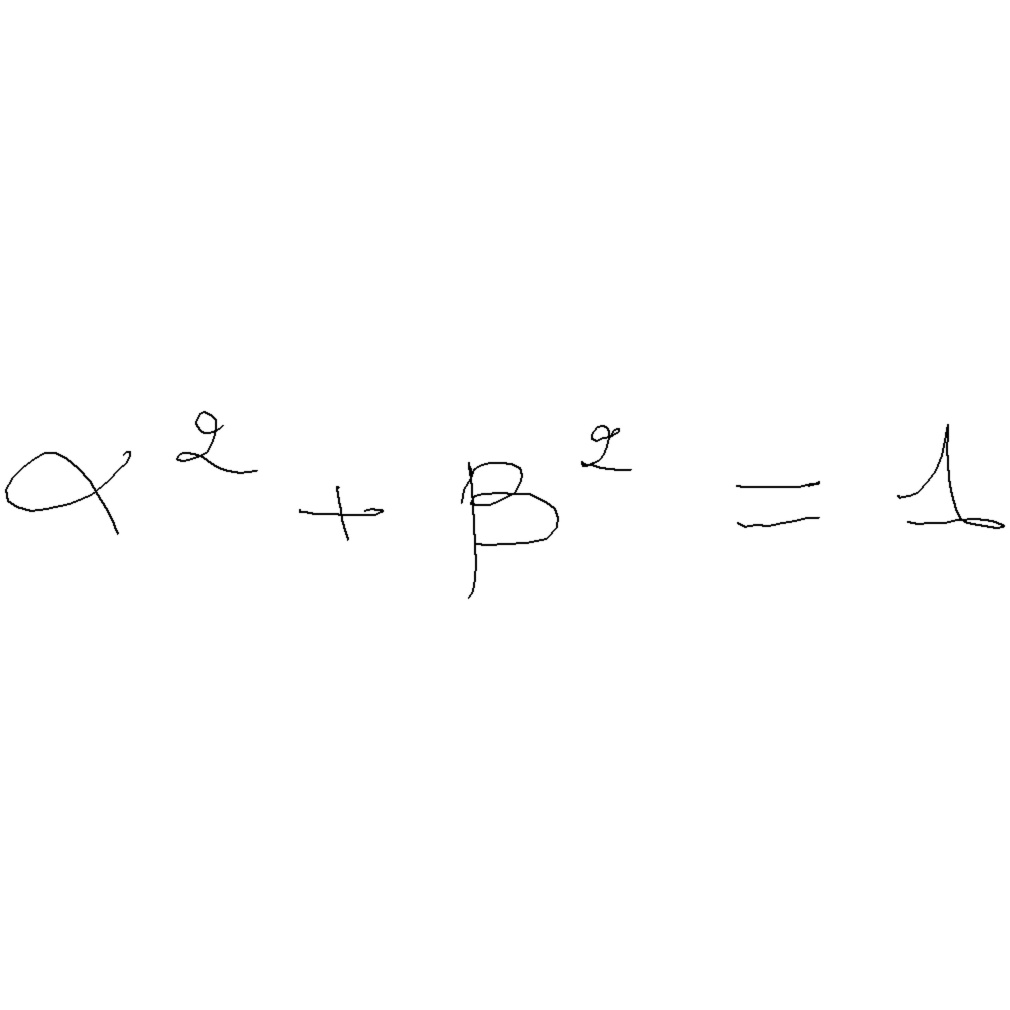 α² + β² = 1